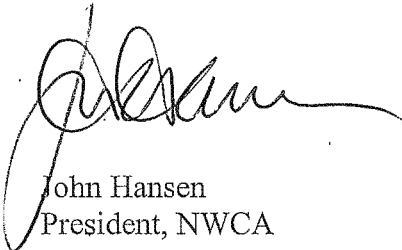 John Hansen
President, NWCA